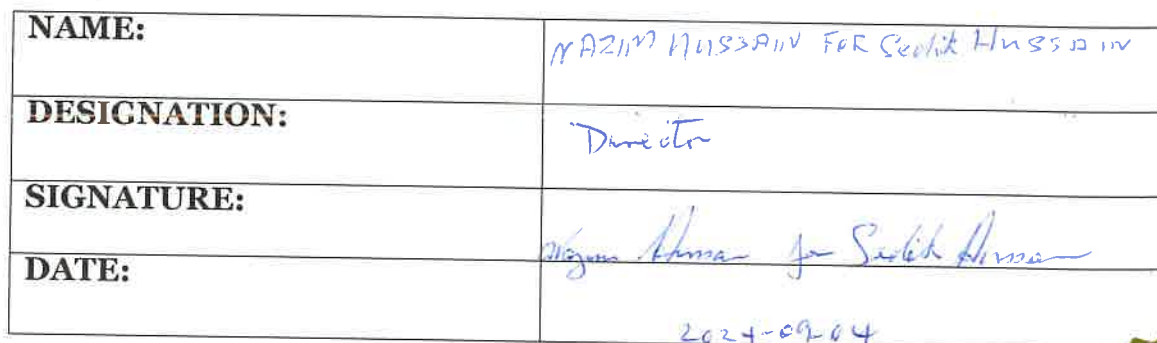 NAME: NAZIM HUSSAIN FOR Sedik HUSSAIN
DESIGNATION: Director
SIGNATURE: Nazim Hussain for Sedik Hussain
DATE: 2024-09-04